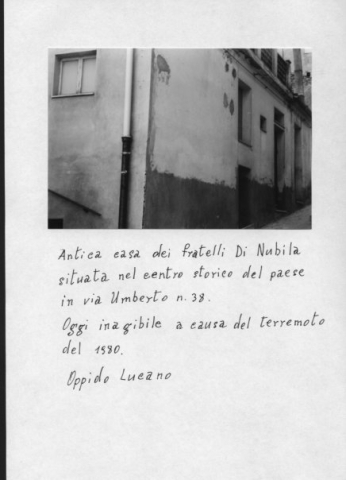 Antica casa dei fratelli Di Nubila
situata nel centro storico del paese
in via Umberto n. 38.
Oggi inagibile a causa del terremoto
del 1980.
Oppido Lucano